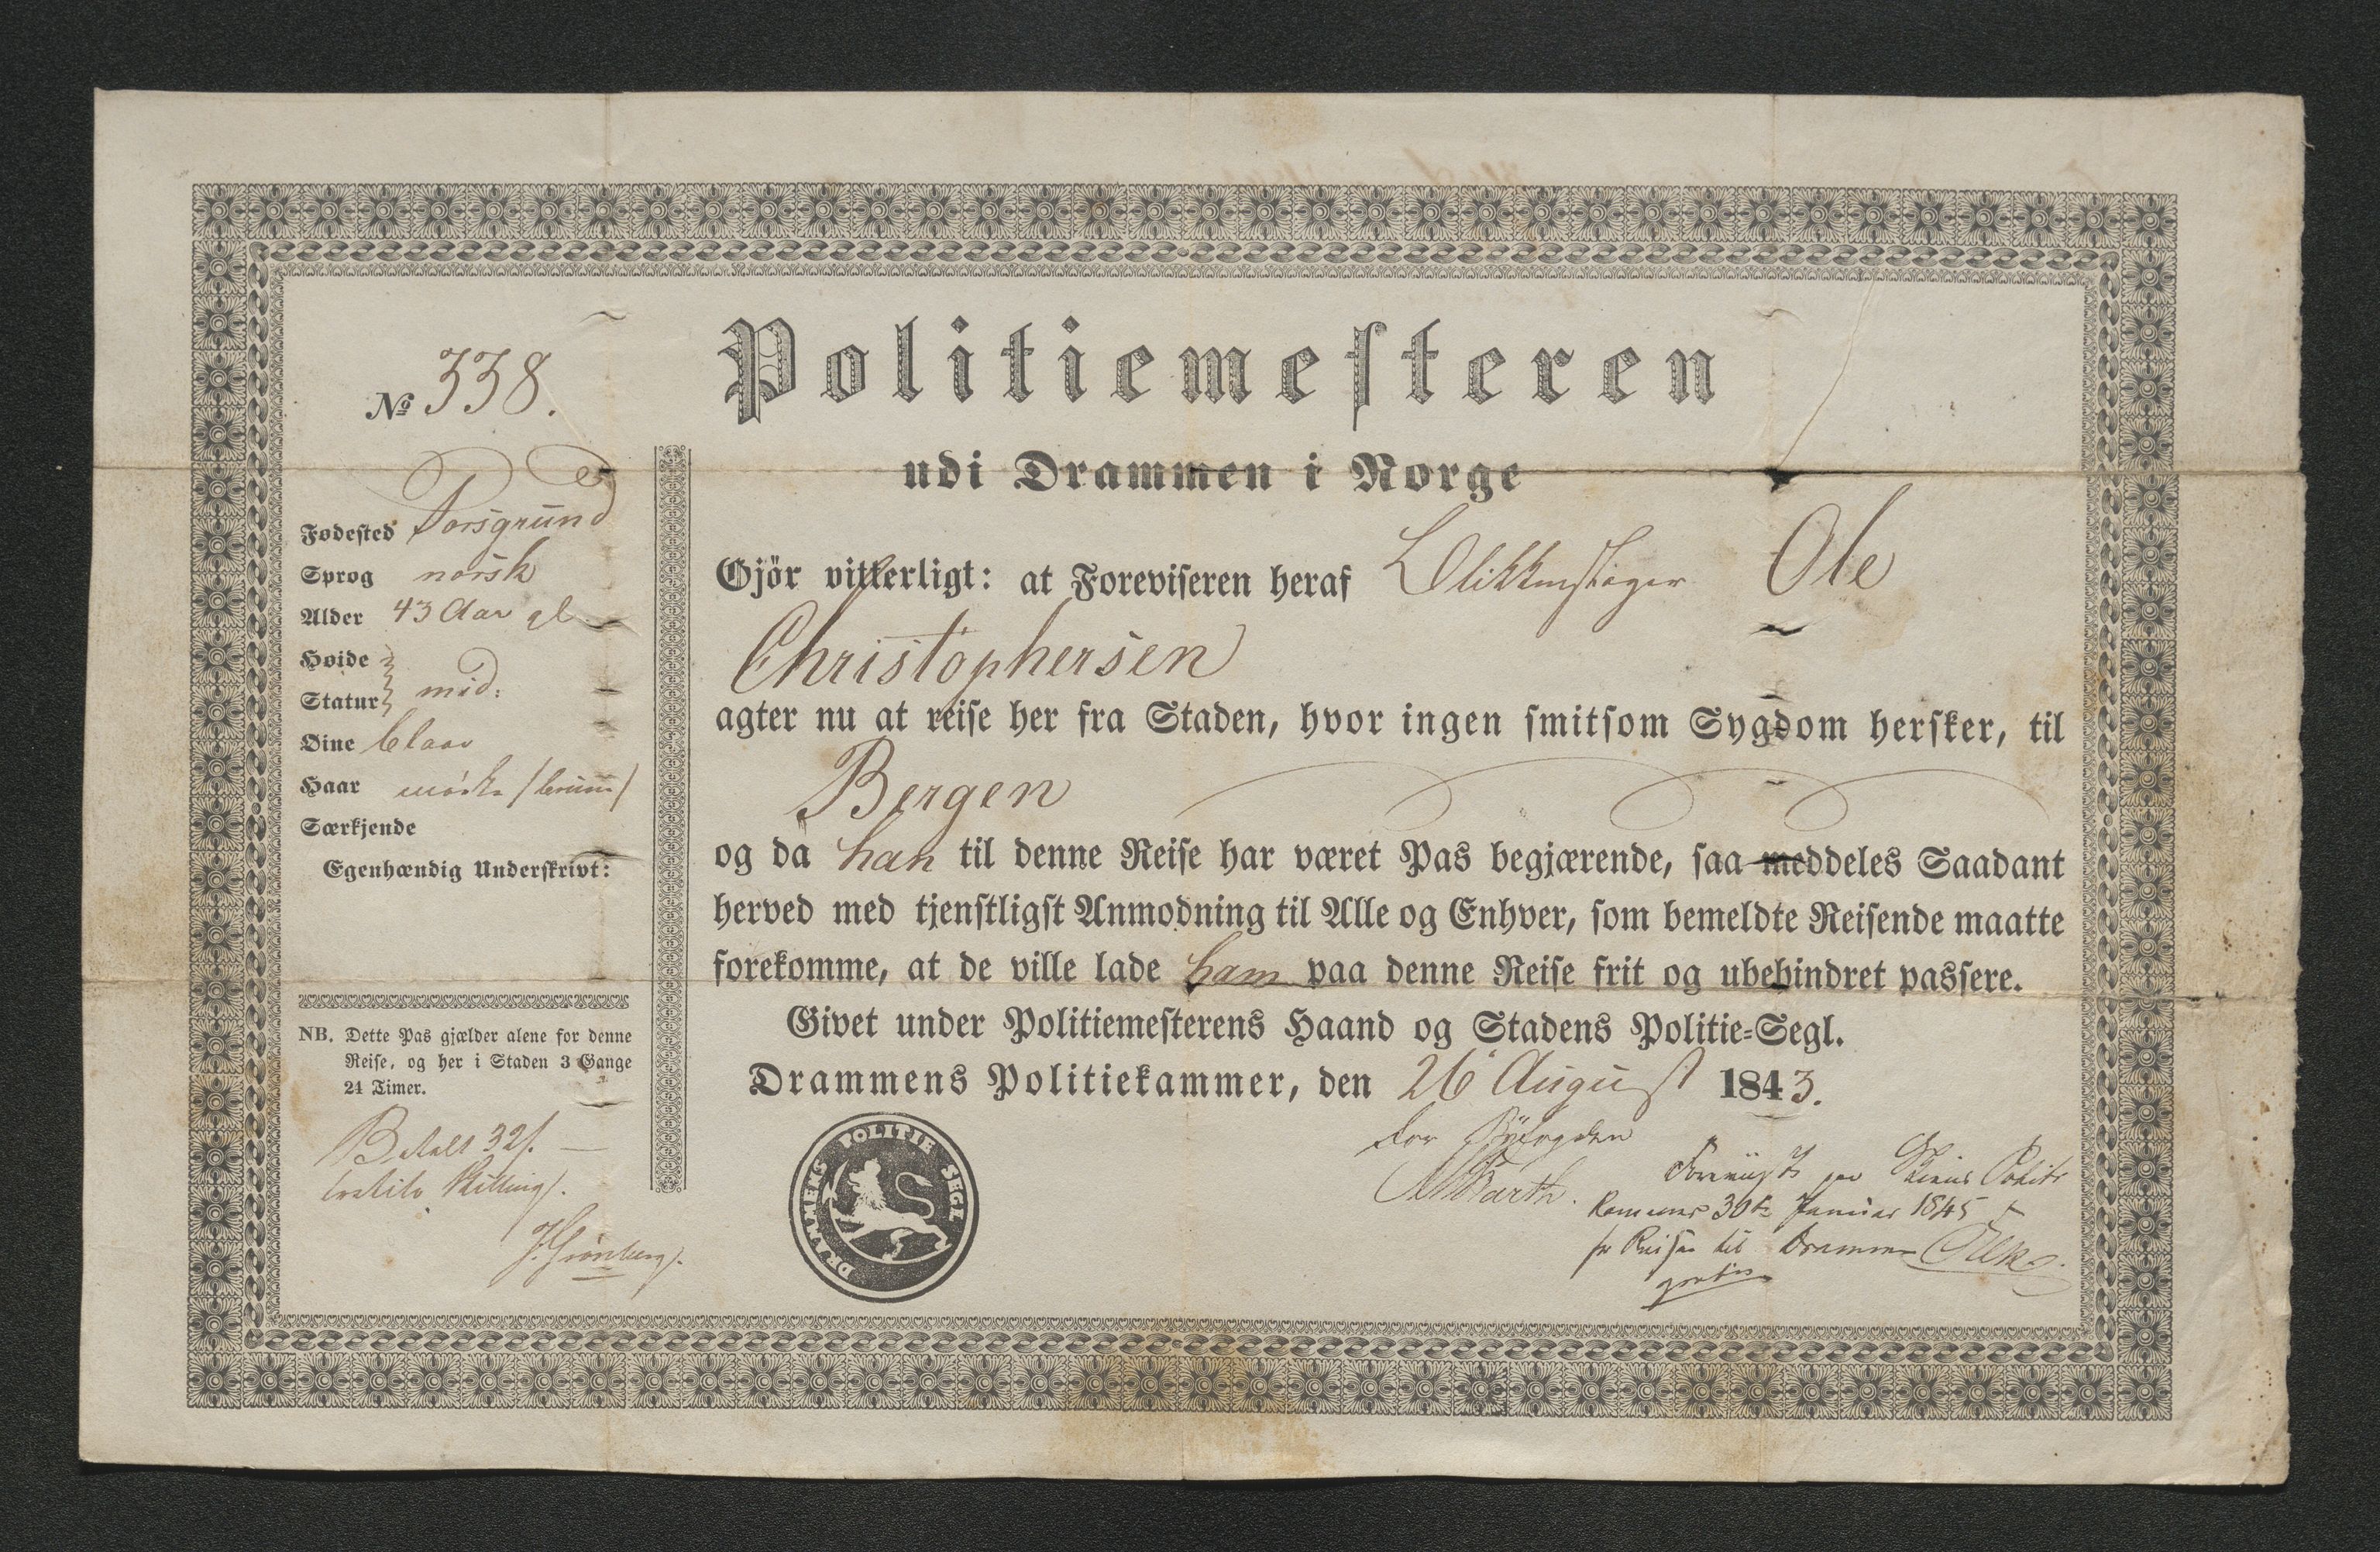 Politiemesteren
udi Drammen i Norge
No 338.
Fødested Porsgrund
Sprog norsk
Alder 43 Aar gl
Høide
Statur mid:
Øine blaae
Haar mørke /bruun/
Særkjende
Egenhændig Underskrivt:
NB. Dette Pas gjælder alene for denne
Reise, og her i Staden 3 Gange
24 Timer.
Betalt 32 s.
tretito Skilling
Gjör vitterligt: at Foreviseren heraf Ole
Christophersen
agter nu at reise her fra Staden, hvor ingen smitsom Sygdom hersker, til
Bergen
og da han til denne Reise har været Pas begjærende, saa meddeles Saadant
herved med tjenstligst Anmodning til Alle og Enhver, som bemeldte Reisende maatte
forekomme, at de ville lade ham paa denne Reise frit og ubehindret passere.
Givet under Politiemesterens Haand og Stadens Politie-Segl.
Drammens Politiekammer, den 26 August 1843.
DRAMMENS POLITIE SEGL
For Byfogden
Barth.
Foreviist paa Skiens Politie
Kammer 30te Januar 1845
for Reisen til Drammen
gratis